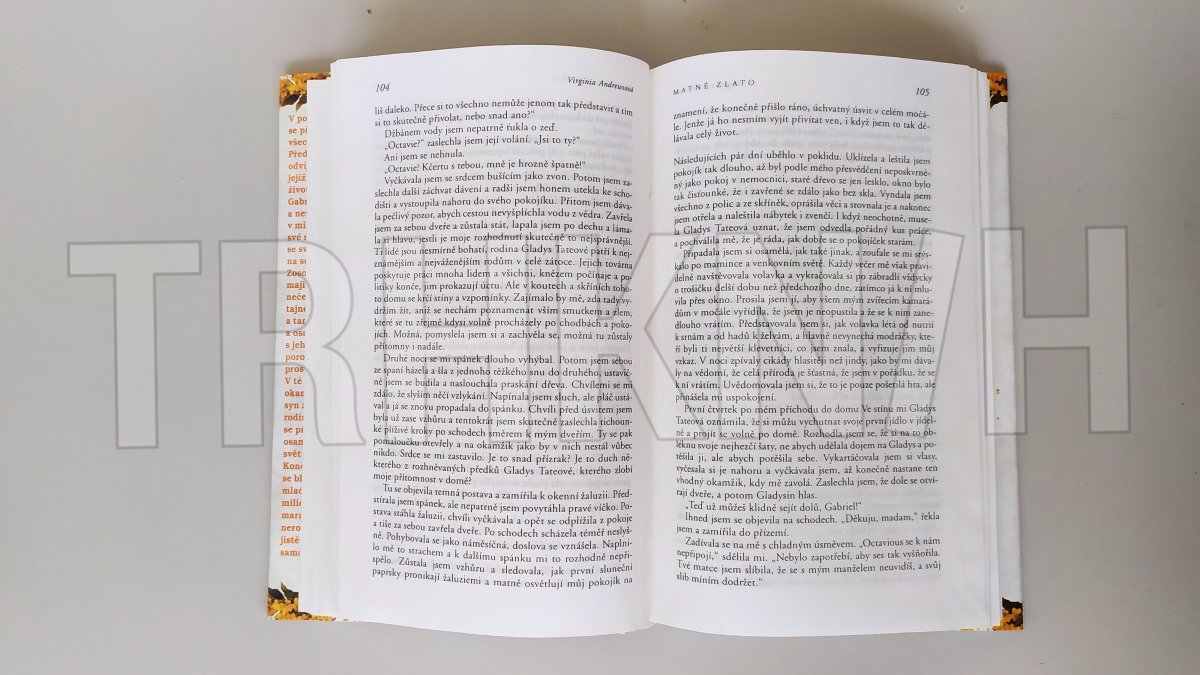 V po
se př
všec
Před
odví
jejíž
život
Gabr
a nev
v mil
své r
se sv
na se
Zoso
mají
nece
tajne
a tar
a osa
s jeh
poro
pros
V té
okar
syn z
rodin
se pr
osan
svět
Kone
se bl
mlad
milie
marr
nero
jisté
sama
104 Virginia Andrewsová
liš daleko. Přece si to všechno nemůže jenom tak představit a tím
si to skutečně přivolat, nebo snad ano?“
Džbánem vody jsem nepatrně ťukla o zeď.
„Octavie?“ zaslechla jsem její volání. „Jsi to ty?“
Ani jsem se nehnula.
„Octavie! Kčertu s tebou, mně je hrozně špatně!“
Vyčkávala jsem se srdcem bušícím jako zvon. Potom jsem za-
slechla další záchvat dávení a radši jsem honem utekla ke scho-
dišti a vystoupila nahoru do svého pokojíku. Přitom jsem dáva-
la pečlivý pozor, abych cestou nevyšplíchla vodu z vědra. Zavřela
jsem za sebou dveře a zůstala stát, lapala jsem po dechu a láma-
la si hlavu, jestli je moje rozhodnutí skutečně to nejsprávnější.
Ti lidé jsou nesmírně bohatí, rodina Gladys Tateové patří k nej-
známějším a nejváženějším rodům v celé zátoce. Jejich továrna
poskytuje práci mnoha lidem a všichni, knězem počínaje a po-
litiky konče, jim prokazují úctu. Ale v koutech a skříních toho-
to domu se krčí stíny a vzpomínky. Zajímalo by mě, zda tady vy-
držím žít, aniž se nechám poznamenat vším smutkem a zlem,
které se tu zřejmě kdysi volně procházely po chodbách a poko-
jích. Možná, pomyslela jsem si a zachvěla se, možná tu zůstaly
přítomny i nadále.
Druhé noci se mi spánek dlouho vyhýbal. Potom jsem sebou
ze spaní házela a šla z jednoho těžkého snu do druhého, ustavič-
ně jsem se budila a naslouchala praskání dřeva. Chvílemi se mi
zdálo, že slyším něčí vzlykání. Napínala jsem sluch, ale pláč ustá-
val a já se znovu propadala do spánku. Chvíli před úsvitem jsem
byla už zase vzhůru a tentokrát jsem skutečně zaslechla tichoun-
ké plíživé kroky po schodech směrem k mým dveřím. Ty se pak
pomaloučku otevřely a na okamžik jako by v nich nestál vůbec
nikdo. Srdce se mi zastavilo. Je to snad přízrak? Je to duch ně-
kterého z rozhněvaných předků Gladys Tateové, kterého zlobí
moje přítomnost v domě?
Tu se objevila temná postava a zamířila k okenní žaluzii. Před-
stírala jsem spánek, ale nepatrně jsem povytáhla pravé víčko. Po-
stava stáhla žaluzii, chvíli vyčkávala a opět se odplížila z pokoje
a tiše za sebou zavřela dveře. Po schodech scházela téměř neslyš-
ně. Pohybovala se jako náměsíčná, doslova se vznášela. Naplni-
lo mě to strachem a k dalšímu spánku mi to rozhodně nepři-
spělo. Zůstala jsem vzhůru a sledovala, jak první sluneční
paprsky pronikají žaluziemi a matně osvětlují můj pokojík na
MATNÉ ZLATO 105
znamení, že konečně přišlo ráno, úchvatný úsvit v celém močá-
le. Jenže já ho nesmím vyjít přivítat ven, i když jsem to tak dě-
lávala celý život.
Následujících pár dní uběhlo v poklidu. Uklízela a leštila jsem
pokojík tak dlouho, až byl podle mého přesvědčení neposkvrně-
ný jako pokoj v nemocnici, staré dřevo se jen lesklo, okno bylo
tak čisťounké, že i zavřené se zdálo jako bez skla. Vyndala jsem
všechno z polic a ze skříněk, oprášila věci a srovnala je a nakonec
jsem otřela a naleštila nábytek i zvenčí. I když neochotně, muse-
la Gladys Tateová uznat, že jsem odvedla pořádný kus práce,
a pochválila mě, že je ráda, jak dobře se o pokojíček starám.
Připadala jsem si osamělá, jako také jinak, a zoufale se mi stýs-
kalo po mamince a venkovním světě. Každý večer mě však pravi-
delně navštěvovala volavka a vykračovala si po zábradlí vždycky
o trošičku delší dobu než předchozího dne, zatímco já k ní mlu-
vila přes okno. Prosila jsem ji, aby všem mým zvířecím kamará-
dům v močále vyřídila, že jsem je neopustila a že se k nim zane-
dlouho vrátím. Představovala jsem si, jak volavka létá od nutrií
k srnám a od hadů k želvám, a hlavně nevynechá modrásky, kte-
ří byli ti největší klevetníci, co jsem znala, a vyřizuje jim můj
vzkaz. V noci zpívaly cikády hlasitěji než jindy, jako by mi dáva-
ly na vědomí, že celá příroda je šťastná, že jsem v pořádku, že se
k ní vrátím. Uvědomovala jsem si, že to je pouze pošetilá hra, ale
přinášela mi uspokojení.
První čtvrtek po mém příchodu do domu Ve stínu mi Gladys
Tateová oznámila, že si můžu vychutnat svoje první jídlo v jídel-
ně a projít se volně po domě. Rozhodla jsem se, že si na to ob-
léknu svoje nejhezčí šaty, ne abych udělala dojem na Gladys a po-
těšila ji, ale abych potěšila sebe. Vykartáčovala jsem si vlasy,
vyčesala si je nahoru a vyčkávala jsem, až konečně nastane ten
vhodný okamžik, kdy mě zavolá. Zaslechla jsem, že dole se otví-
rají dveře, a potom Gladysin hlas.
„Teď už můžeš klidně sejít dolů, Gabriel!“
Ihned jsem se objevila na schodech. „Děkuju, madam,“ řekla
jsem a zamířila do přízemí.
Zadívala se na mě s chladným úsměvem. „Octavious se k nám
nepřipojí,“ sdělila mi. „Nebylo zapotřebí, aby ses tak vyšňořila.
Tvé matce jsem slíbila, že se s mým manželem neuvidíš, a svůj
slib míním dodržet.“